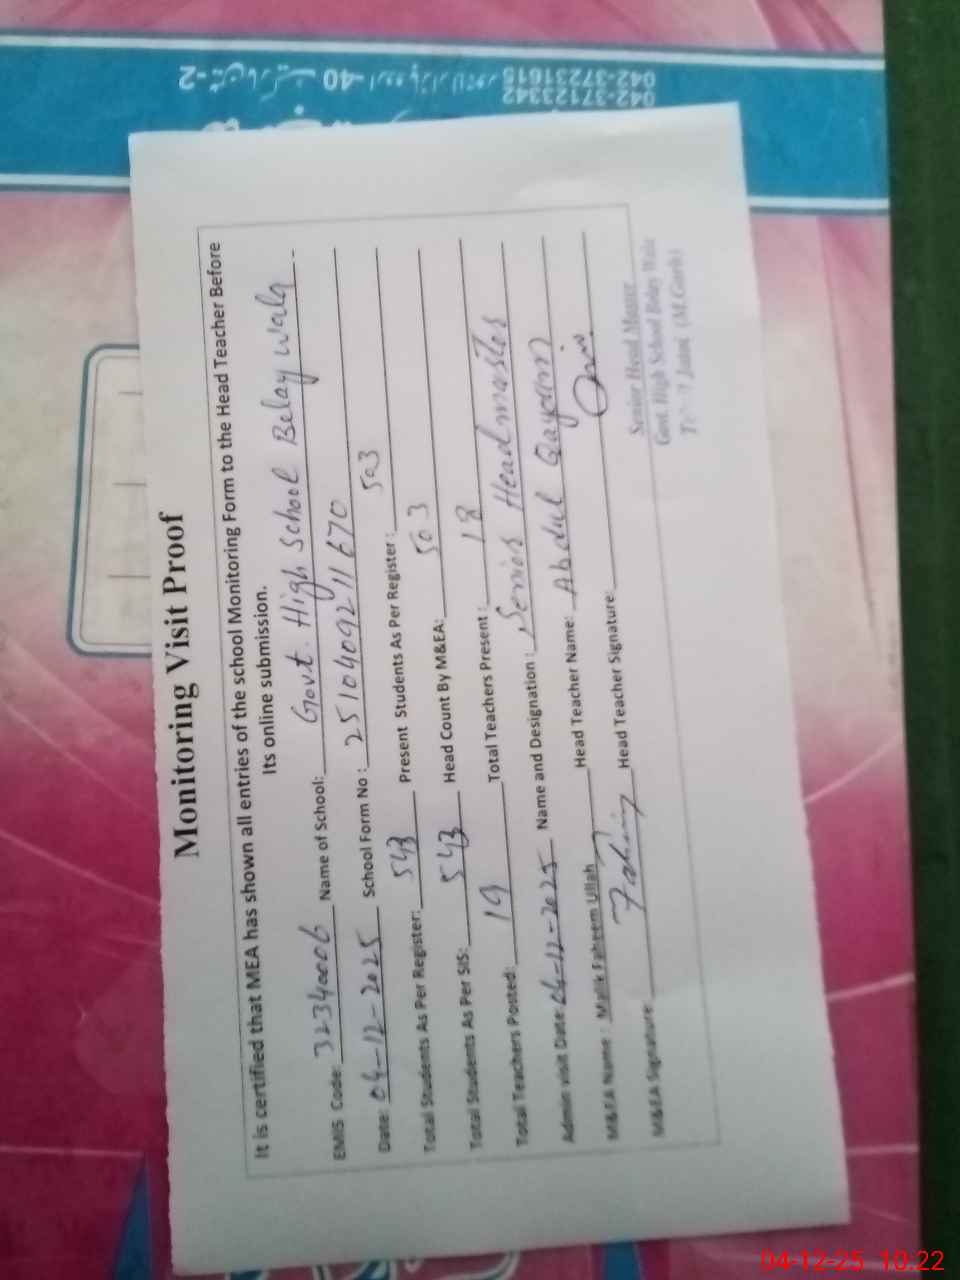 Monitoring Visit Proof
It is certified that MEA has shown all entries of the school Monitoring Form to the Head Teacher Before
Its online submission.
EMIS Code: 32340006 Name of School: Govt. High School Belay wala
Date: 04-12-2025 School Form No : 2510409211670
Total Students As Per Register: 543 Present Students As Per Register: 503
Total Students As Per SIS: 543 Head Count By M&EA: 503
Total Teachers Posted: 19 Total Teachers Present : 18
Admin visit Date: 04-12-2025 Name and Designation : Senior Headmaster
M&EA Name : Malik Faheem Ullah Head Teacher Name: Abdul Qayoom
M&EA Signature: Fahim Head Teacher Signature:
Senior Head Master
Govt. High School Belay Wala
Jatoi (M.Garh)
042-37123342
042-37231615
40-
2-
04-12-25 10:22